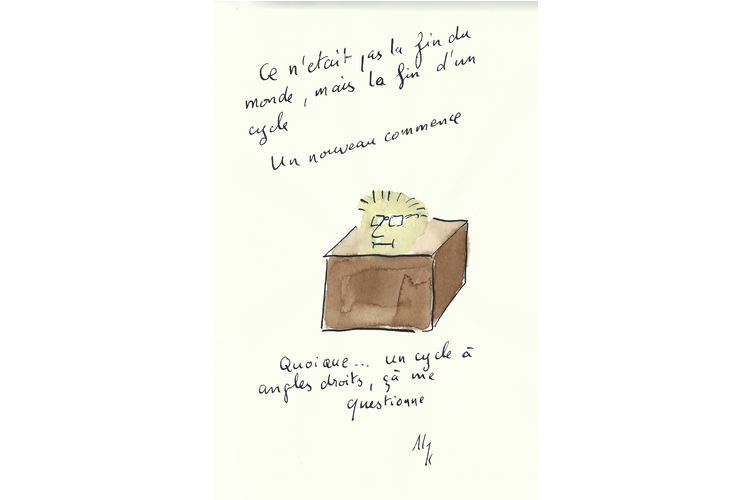 Ce n'était pas la fin du
monde, mais la fin d'un
cycle
Un nouveau commence
Quoique... un cycle à
angles droits, çà me
questionne